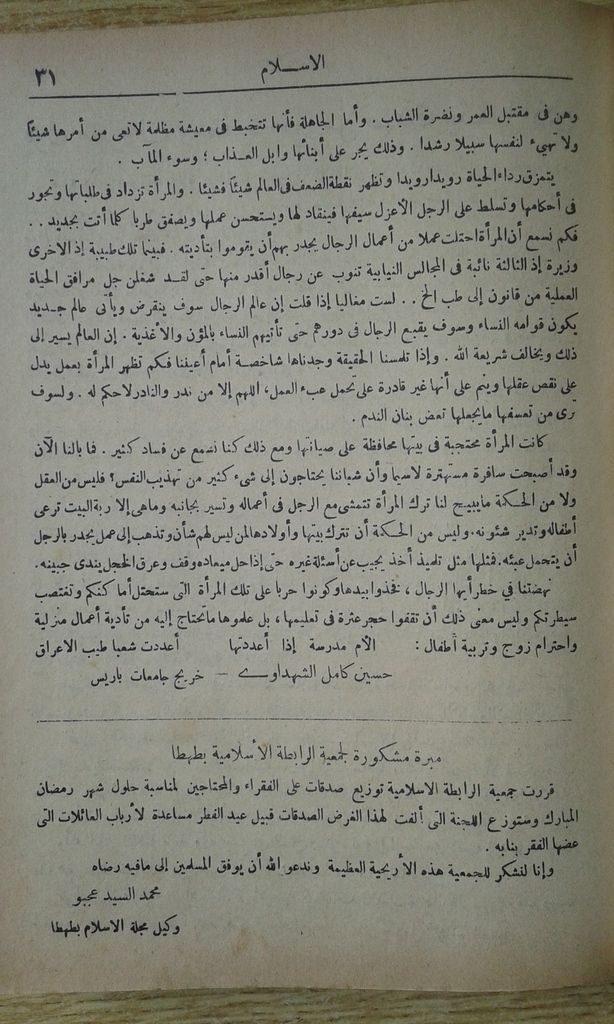 الاسلام
٣١
وهن فى مقتبل العمر ونضرة الشباب . وأما الجاهلة فأنها تتخبط فى معيشة مظلمة لاتعى من أمرها شيئا
ولا تهيىء لنفسها سبيلا رشدا . وذلك يجر على أبنائها وابل العذاب ؛ وسوء المآب .
يتمزق رداء الحياة رويدا رويدا وتظهر نقطة الضعف فى العالم شيئا فشيئا . والمرأة تزداد فى طلباتها وتجور
فى أحكامها وتسلط على الرجل الاعزل سيفها فينقاد لها ويستحسن عملها ويصفق طربا كلما أتت بجديد . .
فكم نسمع أن المرأة احتلت عملا من أعمال الرجال يجدر بهم أن يقوموا بتأديته . فبينما تلك طبيبة إذ الاخرى
وزيرة إذ الثالثة نائبة فى المجالس النيابية تنوب عن رجال أقدر منها حتى لقد شغلن جل مرافق الحياة
العملية من قانون إلى طب الخ . . لست مغاليا إذا قلت إن عالم الرجال سوف ينقرض ويأتى عالم جديد
يكون قوامه النساء وسوف يقبع الرجال فى دورهم حتى تأتيهم النساء بالمؤن والأغذية . إن العالم يسير إلى
ذلك ويخالف شريعة الله . وإذا تلمسنا الحقيقة وجدناها شاخصة أمام أعيننا فكم تظهر المرأة بعمل يدل
على نقص عقلها وينم على أنها غير قادرة على تحمل عبء العمل ، اللهم إلا من ندر والنادر لاحكم له . ولسوف
نرى من تعسفها مايجعلها تعض بنان الندم .
كانت المرأة محتجبة فى بيتها محافظة على صيانتها ومع ذلك كنا نسمع عن فساد كثير . فما بالنا الآن
وقد أصبحت سافرة مستهترة لاسيما وأن شبابنا يحتاجون إلى شىء كثير من تهذيب النفس ؟ فليس من العقل
ولا من الحكمة مايبيح لنا ترك المرأة تتمشى مع الرجل فى أعماله وتسير بجانبه وماهى إلا ربة البيت ترعى
أطفاله وتدير شئونه . وليس من الحكمة أن تترك بيتها وأولادها لمن ليس لهم شأن وتذهب إلى عمل يجدر بالرجل
أن يتحمل عبئه . فمثلها مثل تلميذ أخذ يجيب عن أسئلة غيره حتى إذا حل ميعاده وقف وعرق الخجل يندى جبينه .
نهضتنا فى خطر أيها الرجال ، فخذوا بيدها وكونوا حربا على تلك المرأة التى ستحتل أماكنكم وتغتصب
سيطرتكم وليس معنى ذلك أن تقفوا حجر عثرة فى تعليمها ، بل علموها ماتحتاج إليه من تأدية أعمال منزلية
واحترام زوج وتربية أطفال : الأم مدرسة إذا أعددتها أعددت شعبا طيب الاعراق
حسين كامل الشهداوى — خريج جامعات باريس
مبرة مشكورة لجمعية الرابطة الأسلامية بطهطا
قررت جمعية الرابطة الاسلامية توزيع صدقات على الفقراء والمحتاجين لمناسبة حلول شهر رمضان
المبارك وستوزع اللجنة التى ألفت لهذا الغرض الصدقات قبيل عيد الفطر مساعدة لأرباب العائلات التى
عضها الفقر بنابه .
وإنا لنشكر للجمعية هذه الأريحية العظيمة وندعو الله أن يوفق المسلمين إلى مافيه رضاه
محمد السيد عجبو
وكيل مجلة الاسلام بطهطا